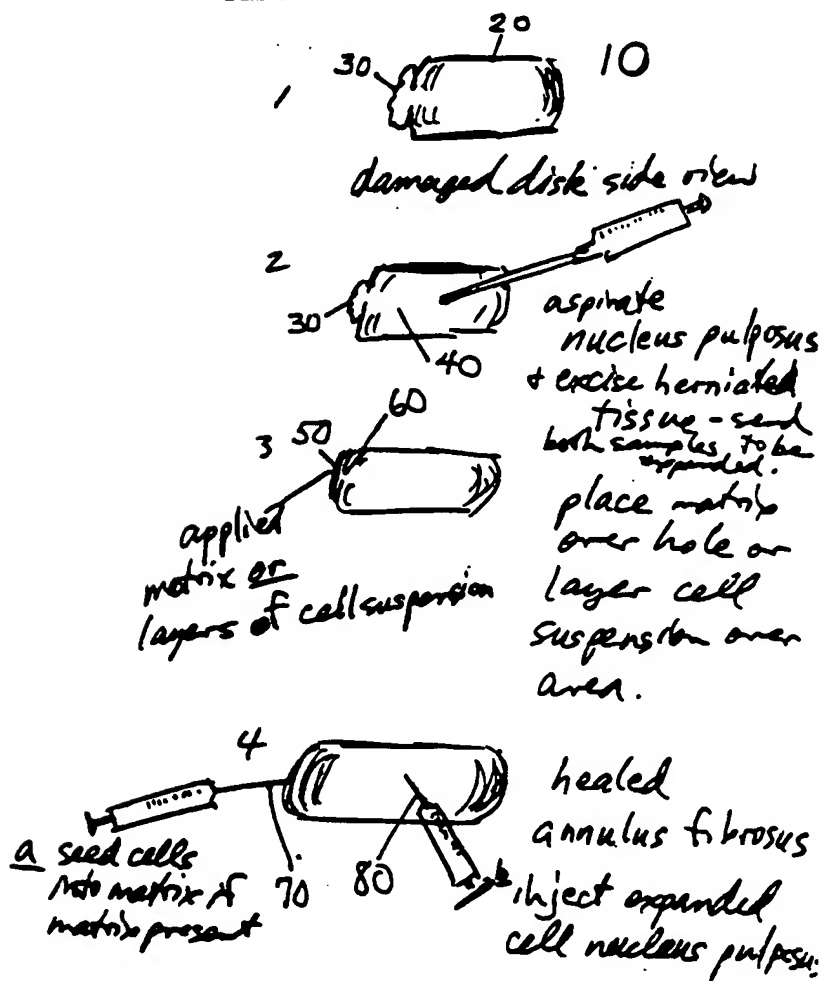 20
10
30
1
damaged disk side view
2
30
40
aspirate
nucleus pulposus
+ excise herniated
tissue - send
both samples to be
expanded.
3 50 60
applied
matrix or
layers of cell suspension
place matrix
over hole or
layer cell
suspension over
area.
4
healed
annulus fibrosus
a seed cells
into matrix if
matrix present
70
80
b
inject expanded
cell nucleus pulposus.